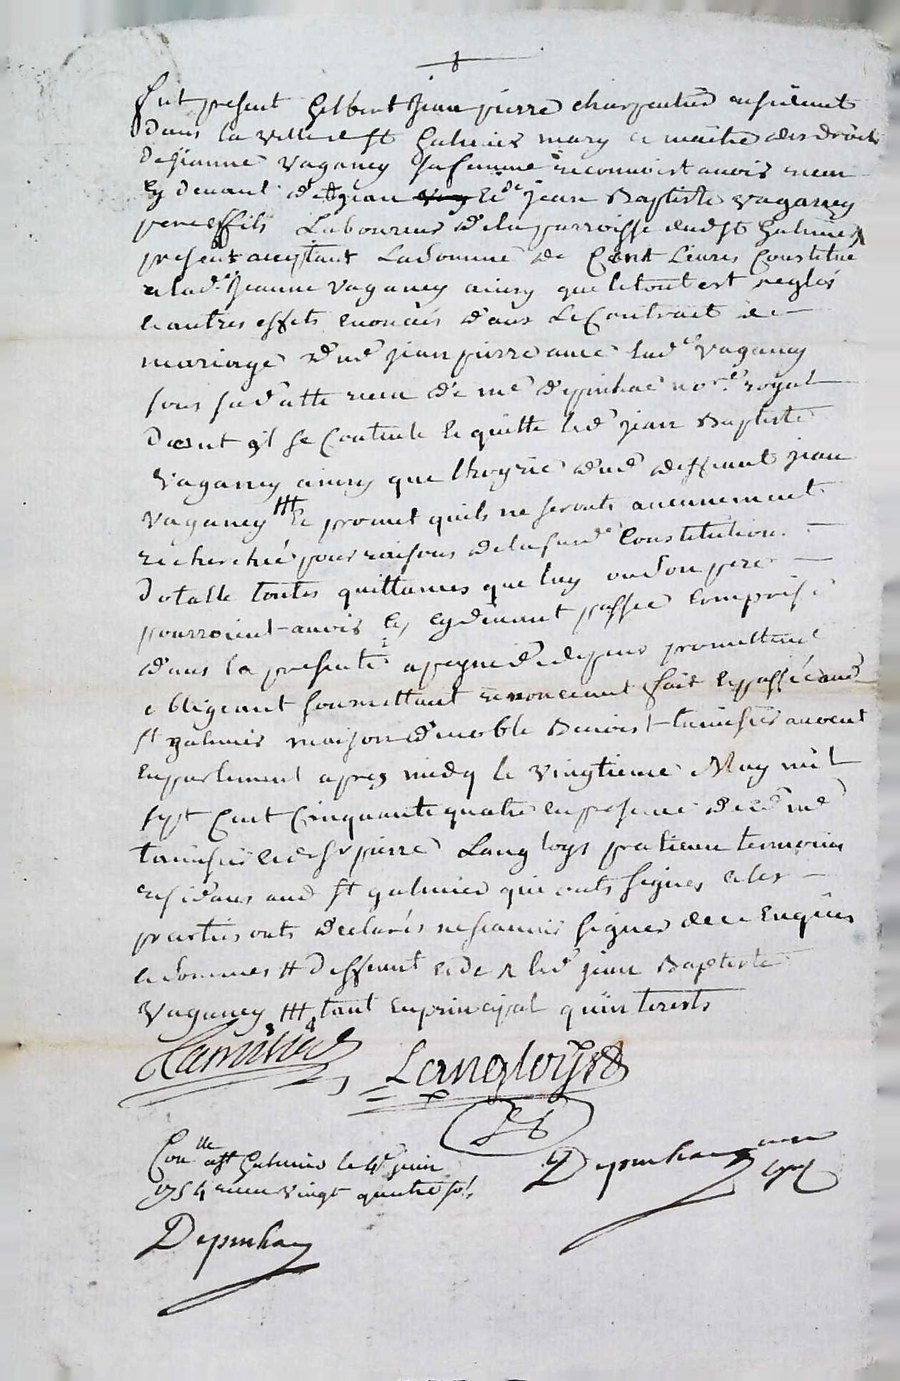 fut present Gilbert Jean pierre charpentier residant
dans la ville de st Galmier mary et maitre des droits
de Jeanne Vaganey sa femme reconnoist avoir receu
cy devant de # jean et de jean Baptiste Vaganey
pere et fils Laboureur de la parroisse dud st Galmier
present acceptant La somme de Cent Livres Constitué
a lad.e Jeanne Vaganey ainsy que le tout est reglés
et autres effets enoncés dans Le Contrait de
mariage dud jean pierre avec lad.e Vaganey
sous sa datte receu de me Depinhac no.re royal
Dont il se Contente et quitte led jean Baptiste
Vaganey ainsy que l'hoyrie dud deffunt jean
Vaganey ### et promet quils ne seronts aucunement
recherché pour raisons de la susd.e Constitution
Dotalle toutes quittances que luy ou son pere
pourroient avoir cy devant passée comprise
dans la presente a peyne de depens promettant
obligeant soumettant renonceant fait et passé aud
st galmier maison de noble Benoist tamisier avocat
en parlement apres midy le vingtieme May mil
sept Cent Cinquante quatre en presence dud me
tamisier et de sr pierre Langloys praticien temoins
residans aud st galmier qui onts signes et les
parties onts declarés ne scavoir signer de ce Enquis
et sommes # deffunt et de led jean Baptiste
Vaganey ### tant en principal qu'interests
Tamisier
Langloys
Con.lle a st Galmier le 4e juin
1754 receu vingt quatre sols
Depinhac
Depinhac